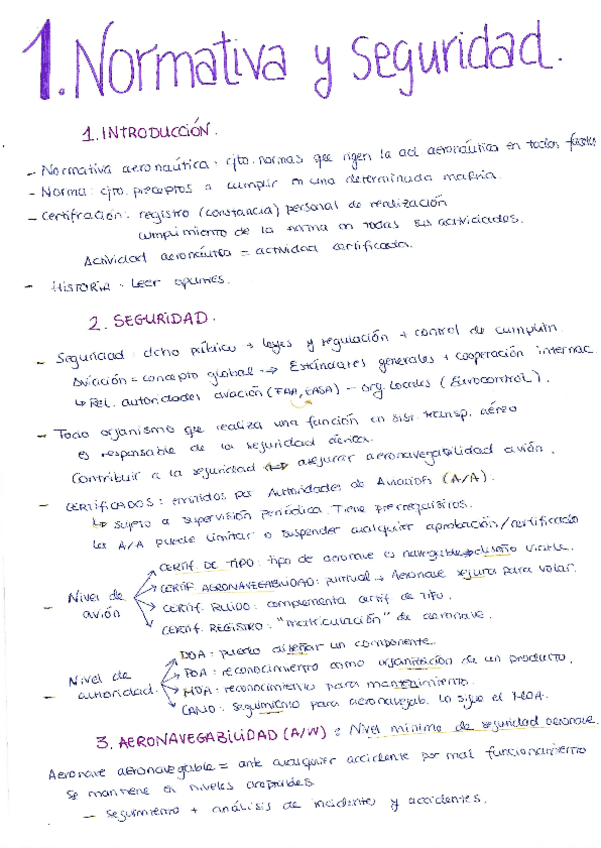 1. Normativa y seguridad.
1. INTRODUCCIÓN.
- Normativa aeronáutica: cjto. normas que rigen la act. aeronáutica en todas fases
- Norma: cjto. preceptos a cumplir en una determinada materia.
- Certificación: registro (constancia) personal de realización
cumplimiento de la norma en todas sus actividades.
Actividad aeronáutica = actividad certificada.
- HISTORIA: Leer apuntes.
2. SEGURIDAD.
- Seguridad: dcho público → leyes y regulación + control de cumplim.
Aviación = concepto global → Estándares generales + cooperación internac.
↳ Rel. autoridades aviación (FAA, EASA) - org. locales (Eurocontrol).
- Todo organismo que realiza una función en sist. transp. aéreo
es responsable de la seguridad
Contribuir a la seguridad ↔ asegurar aeronavegabilidad avión.
- CERTIFICADOS: emitidos por Autoridades de Aviación (A/A).
↳ sujeto a supervisión periódica. Tiene prerrequisitos.
Las A/A puede limitar o suspender cualquier aprobación/certificado
- Nivel de avión
CERTIF. DE TIPO: tipo de aeronave es navegable diseño viable.
CERTIF. AERONAVEGABILIDAD: puntual → Aeronave segura para volar.
CERTIF. RUIDO: complementa certif de tipo.
CERTIF. REGISTRO: "matriculación" de aeronave.
- Nivel de autoridad
DOA: puedo diseñar un componente.
POA: reconocimiento como organización de un producto.
MOA: reconocimiento para mantenimiento.
CAMO: seguimiento para aeronavegab. lo sigue el MOA.
3. AERONAVEGABILIDAD (A/W): Nivel mínimo de seguridad aeronave.
Aeronave aeronavegable = ante cualquier accidente por mal funcionamiento
se mantiene en niveles aceptables
- seguimiento + análisis de incidentes y accidentes.